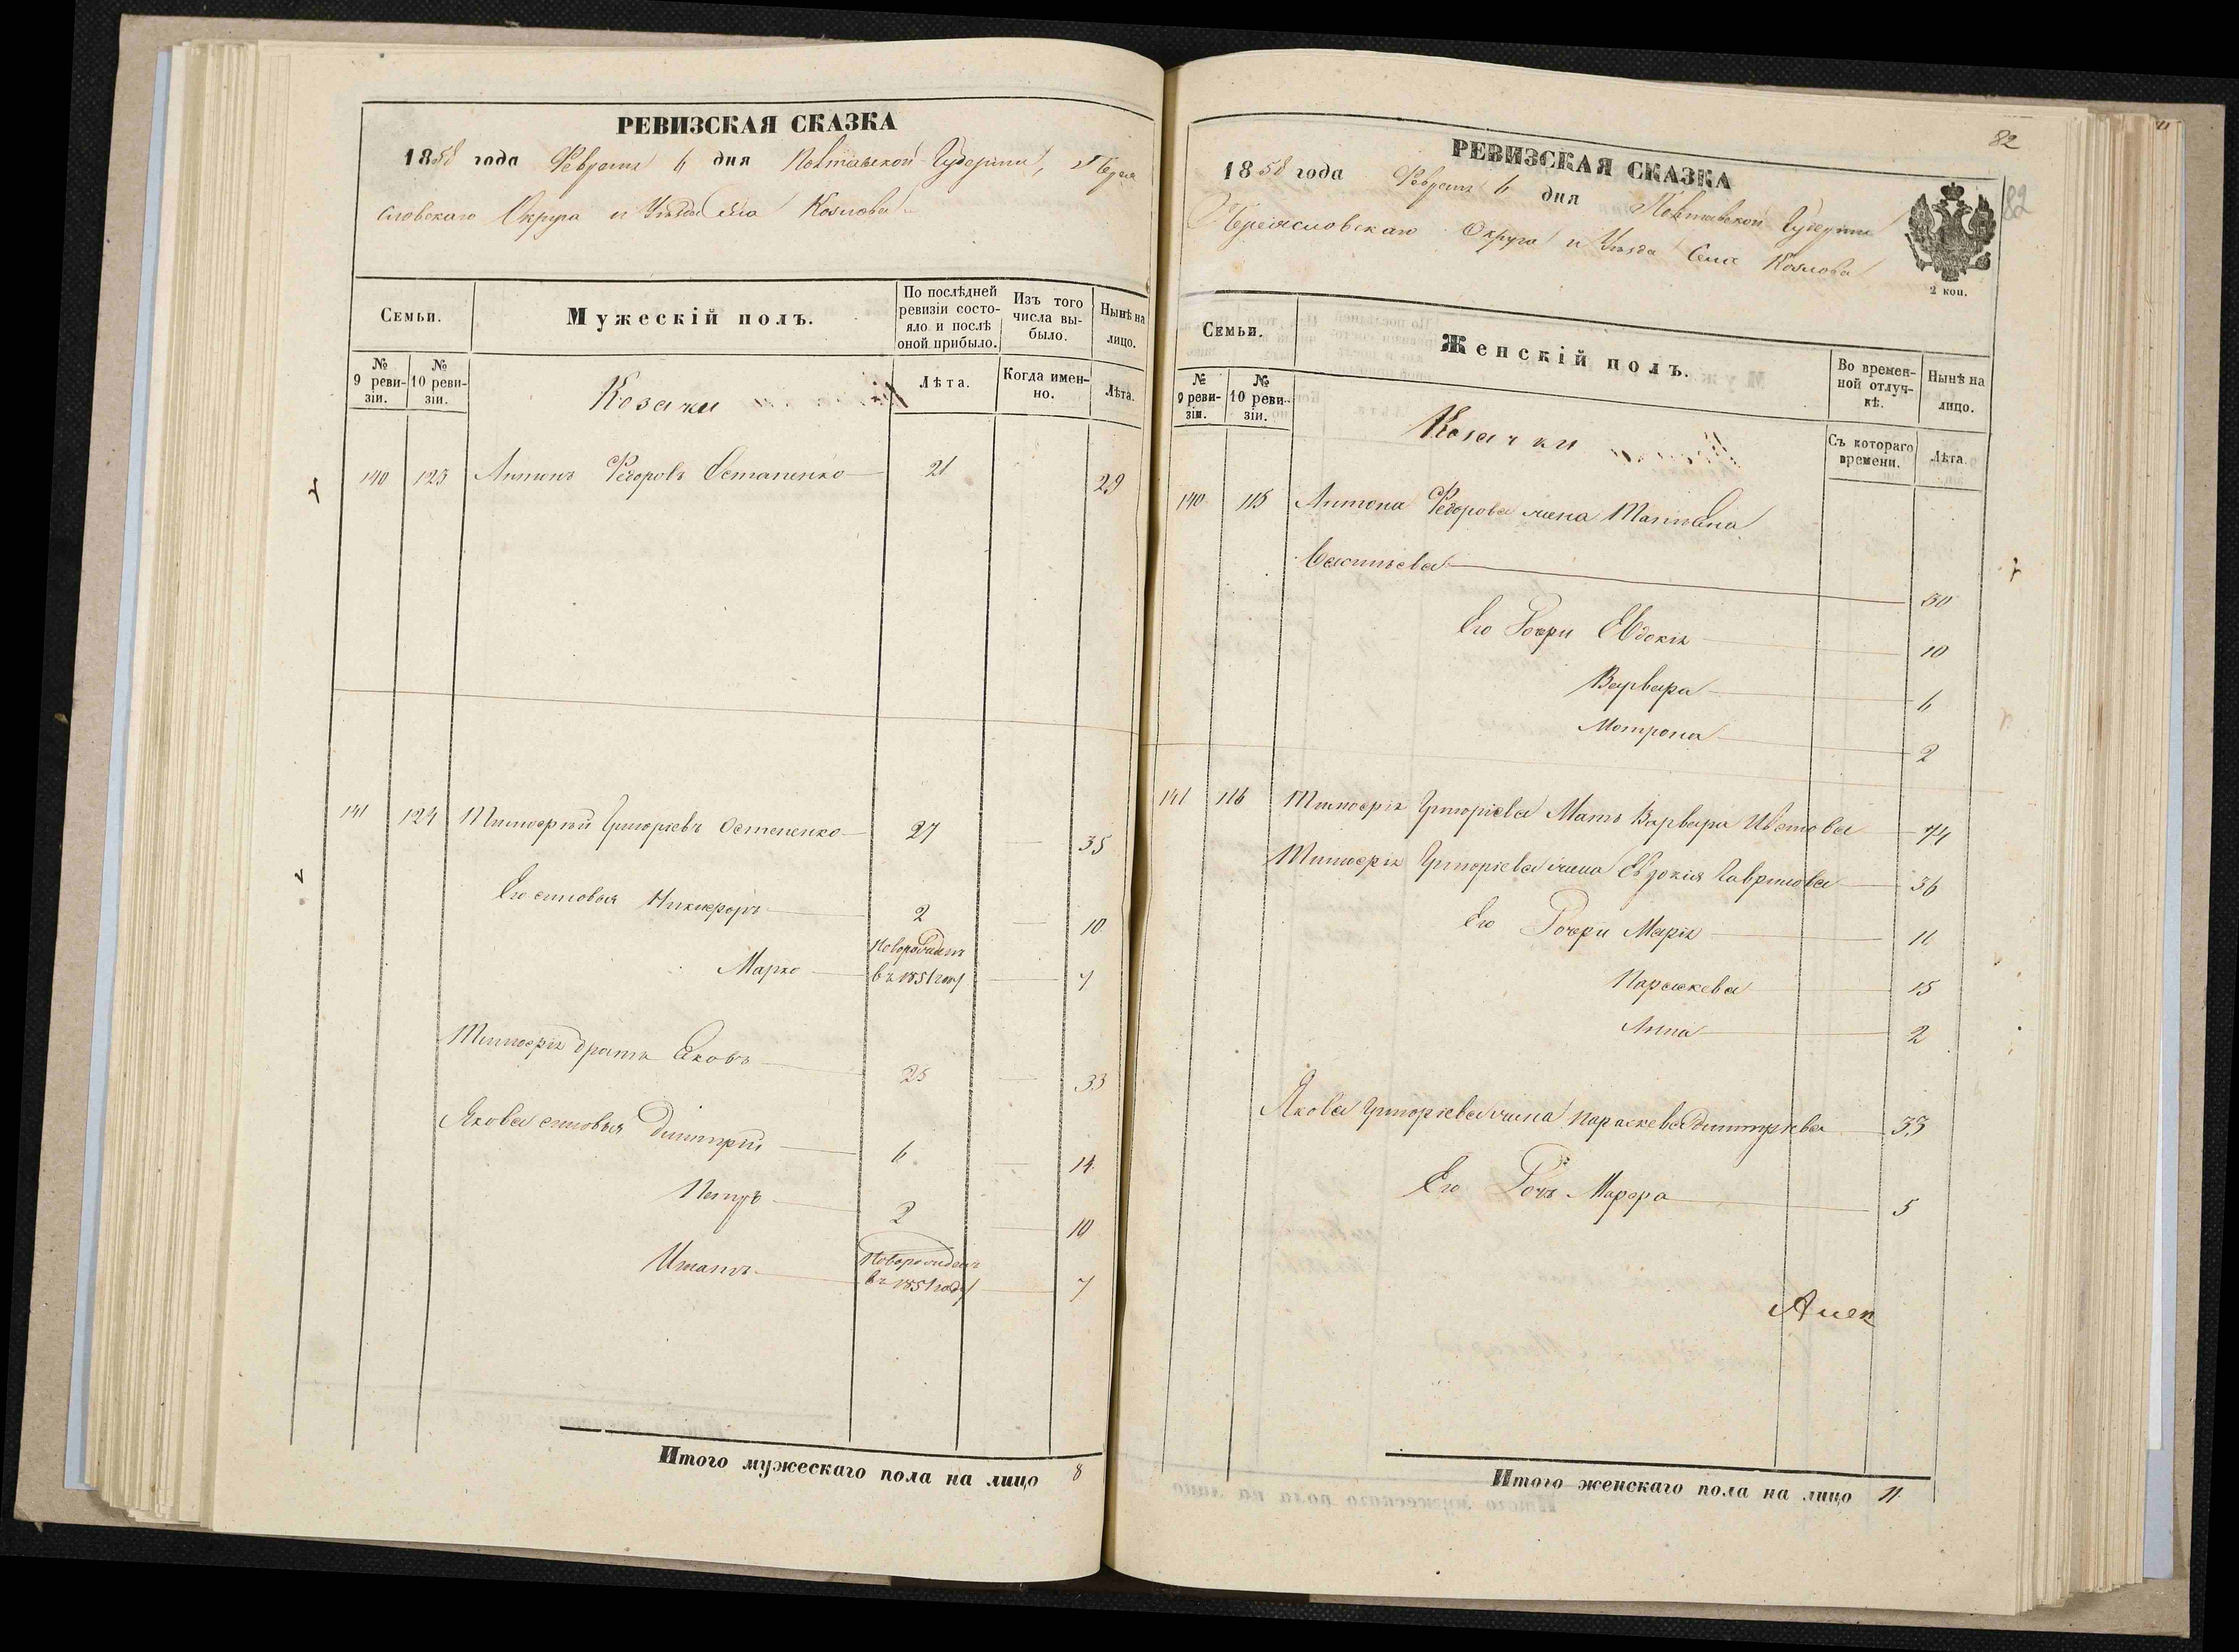 РЕВИЗСКАЯ СКАЗКА
1858 года Февраля 6 дня Полтавской Губернии, Перея
словскаго Округа и Уѣзда Села Козлова
Семьи.
Мужескій полъ.
По послѣдней ревизіи состо-
яло и послѣ
оной прибыло.
Изъ того
числа вы-
было.
Нынѣ на
лицо.
№ 9 реви-
зіи.
№ 10 реви-
зіи.
Козаки
Лѣта.
Когда имен-
но.
Лѣта.
140 123 Антонъ Федоровъ Остапенко 21 29
141 124 Тимофей Григорьевъ Остапенко 27 35
Его сыновья Никифоръ 2 10
Марко Новорожденъ
въ 1851 году 7
Тимофея братъ Яковъ 25 33
Якова сыновья Димитрій 6 14
Петръ 2 10
Новорожденъ
въ 1851 году 7
Итого мужескаго пола на лицо 8
82
82
РЕВИЗСКАЯ СКАЗКА
1858 года Февраля 6 дня Полтавской Губернии
Переясловскаго Округа и Уѣзда Села Козлова
2 коп.
Семьи.
Женскій полъ.
Во времен-
ной отлуч-
кѣ.
Нынѣ на
лицо.
№ 9 реви-
зіи.
№ 10 реви-
зіи.
Козачки
Съ котораго
времени.
Лѣта.
140 115 Антона Федорова жена Татіана
Васильева 30
Его дочери Евдокія 10
Варвара 6
Мотрона 2
141 116 Тимофея Григорьева Мать Варвара 74
Тимофея Григорьева жена Евдокія Гаврилова 36
Его дочери Марія 11
Параскева 15
Анна 2
Якова Григорьева жена Параскева Димитріева 33
Его дочь Марфа 5
Алек
Итого женскаго пола на лицо 11